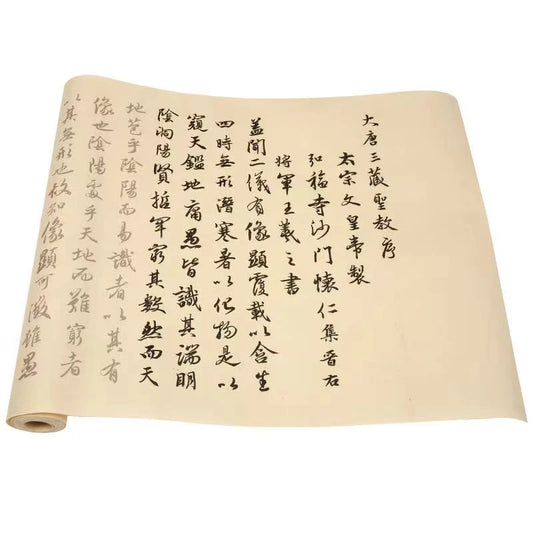 大唐三藏聖教序
太宗文皇帝製
弘福寺沙門懷仁集晉右
將軍王羲之書
蓋聞二儀有像顯覆載以含生
四時無形潛寒暑以化物是以
窺天鑑地庸愚皆識其端明
陰洞陽賢哲罕窮其數然而天
地苞乎陰陽而易識者以其有
像也陰陽處乎天地而難窮者
以其無形也故知像顯可徵雖愚